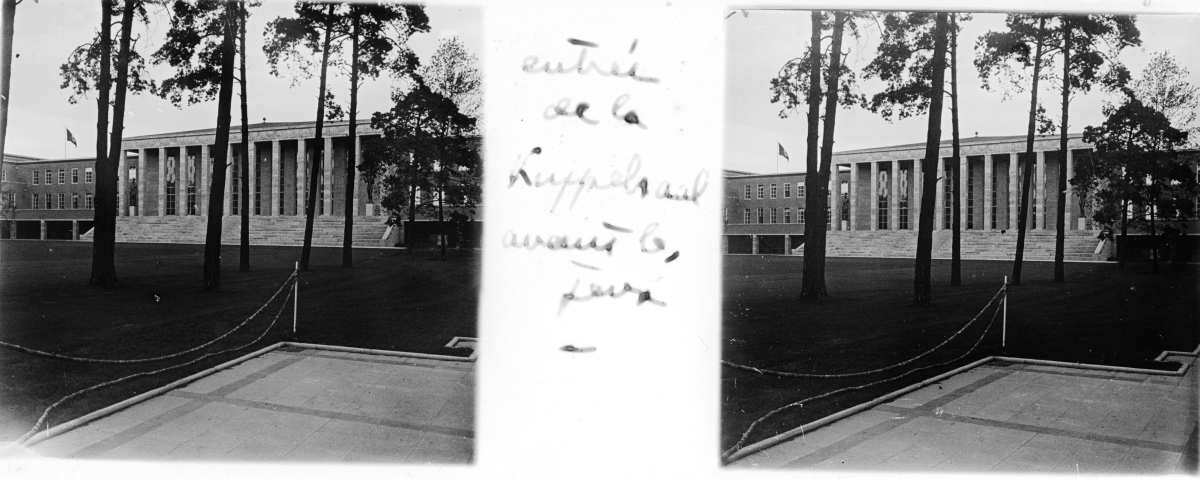 entrée
de la
Kuppelsaal
avant le,